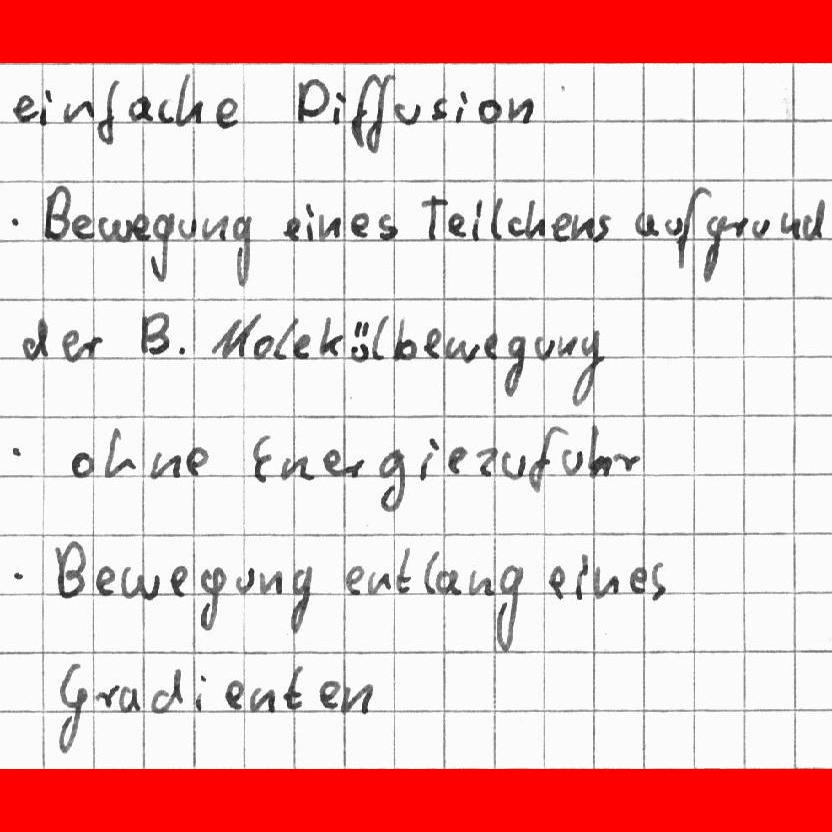 einfache Diffusion
· Bewegung eines Teilchens aufgrund
der B. Molekülbewegung
· ohne Energiezufuhr
· Bewegung entlang eines
Gradienten